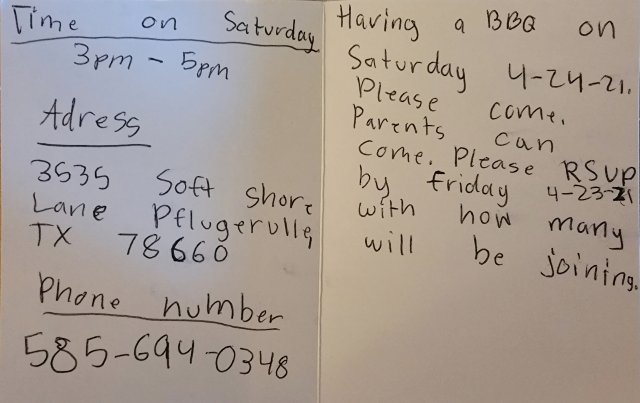 Time on Saturday
3pm - 5pm
Adress
3535 Soft Shore
Lane Pflugerville,
TX 78660
Phone number
585-694-0348
Having a BBQ on
Saturday 4-24-21.
Please come.
Parents can
come. Please RSVP
by Friday 4-23-21
with how many
will be joining.